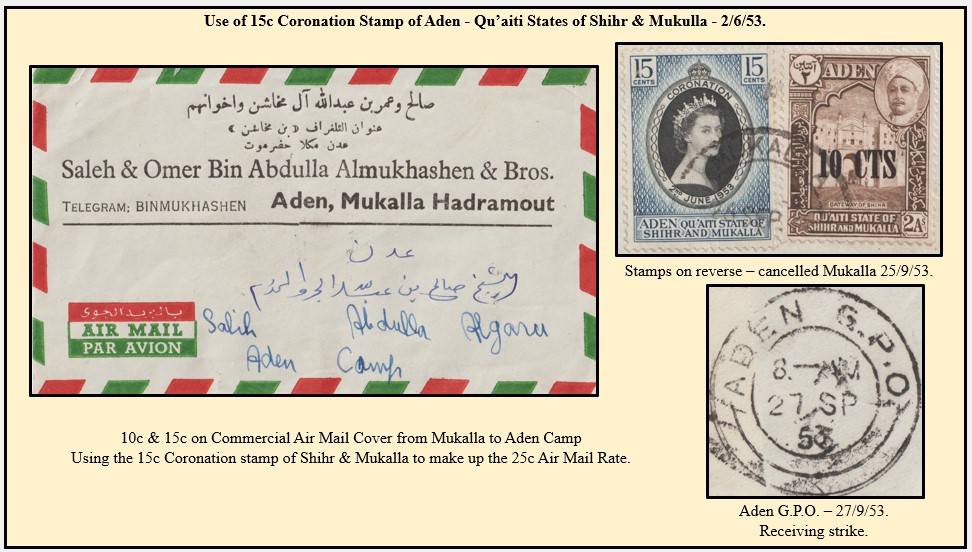 Use of 15c Coronation Stamp of Aden - Qu’aiti States of Shihr & Mukulla - 2/6/53.
صالح وعمر بن عبدالله آل مخاشن واخوانهم
عنوان التلغراف « بن مخاشن »
عدن مكلا حضرموت
Saleh & Omer Bin Abdulla Almukhashen & Bros.
TELEGRAM; BINMUKHASHEN Aden, Mukalla Hadramout
عدن
الشيخ صالح بن عبدالله
بالبريد الجوى
AIR MAIL
PAR AVION
Salih Abdulla Algaru
Aden Camp
15 CENTS
15 CENTS
CORONATION
2ND JUNE 1953
ADEN QU'AITI STATE OF
SHIHR AND MUKALLA
ADEN
10 CTS
GATEWAY OF SHIHR
QU'AITI STATE OF
SHIHR AND MUKALLA
2A
Stamps on reverse – cancelled Mukalla 25/9/53.
ADEN G.P.O.
8-AM
27 SP
53
10c & 15c on Commercial Air Mail Cover from Mukalla to Aden Camp
Using the 15c Coronation stamp of Shihr & Mukalla to make up the 25c Air Mail Rate.
Aden G.P.O. – 27/9/53.
Receiving strike.